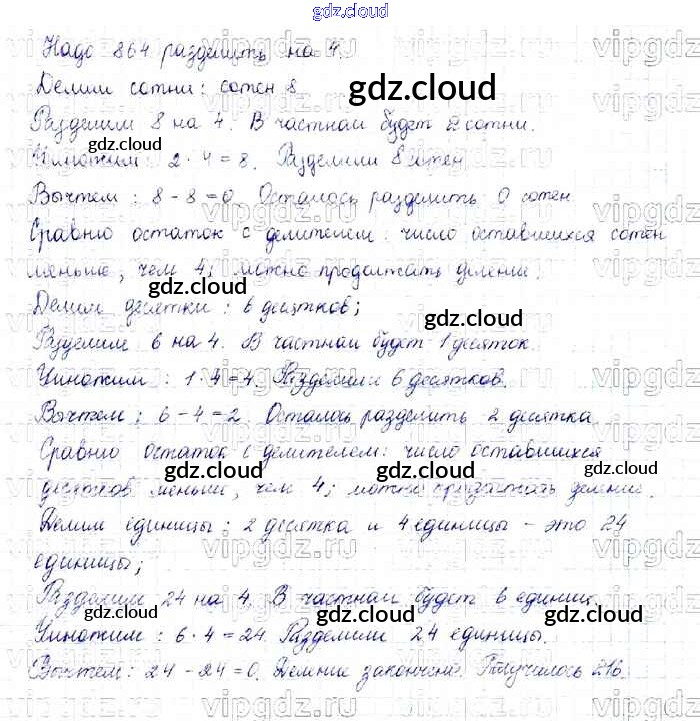 gdz.cloud
Надо 864 разделить на 4.
Делим сотни: сотен 8
gdz.cloud
Разделим 8 на 4. В частном будет 2 сотни.
Умножим: 2 · 4 = 8. Разделили 8 сотен
Вычтем: 8 - 8 = 0. Осталось разделить 0 сотен
Сравню остаток с делителем: число оставшихся сотен
меньше, чем 4; можно продолжать деление.
Делим десятки: 6 десятков;
gdz.cloud gdz.cloud
Разделим 6 на 4. В частном будет 1 десяток.
Умножим: 1 · 4 = 4. Разделили 6 десятков.
gdz.cloud
Вычтем: 6 - 4 = 2. Осталось разделить 2 десятка.
Сравню остаток с делителем: число оставшихся
gdz.cloud gdz.cloud gdz.cloud
десятков меньше, чем 4; можно продолжать деление.
Делим единицы: 2 десятка и 4 единицы - это 24
единицы;
Разделим 24 на 4. В частном будет 6 единиц
gdz.cloud gdz.cloud gdz.cloud
Умножим: 6 · 4 = 24. Разделили 24 единицы.
Вычтем: 24 - 24 = 0. Деление закончено. Получилось 216.
gdz.cloud